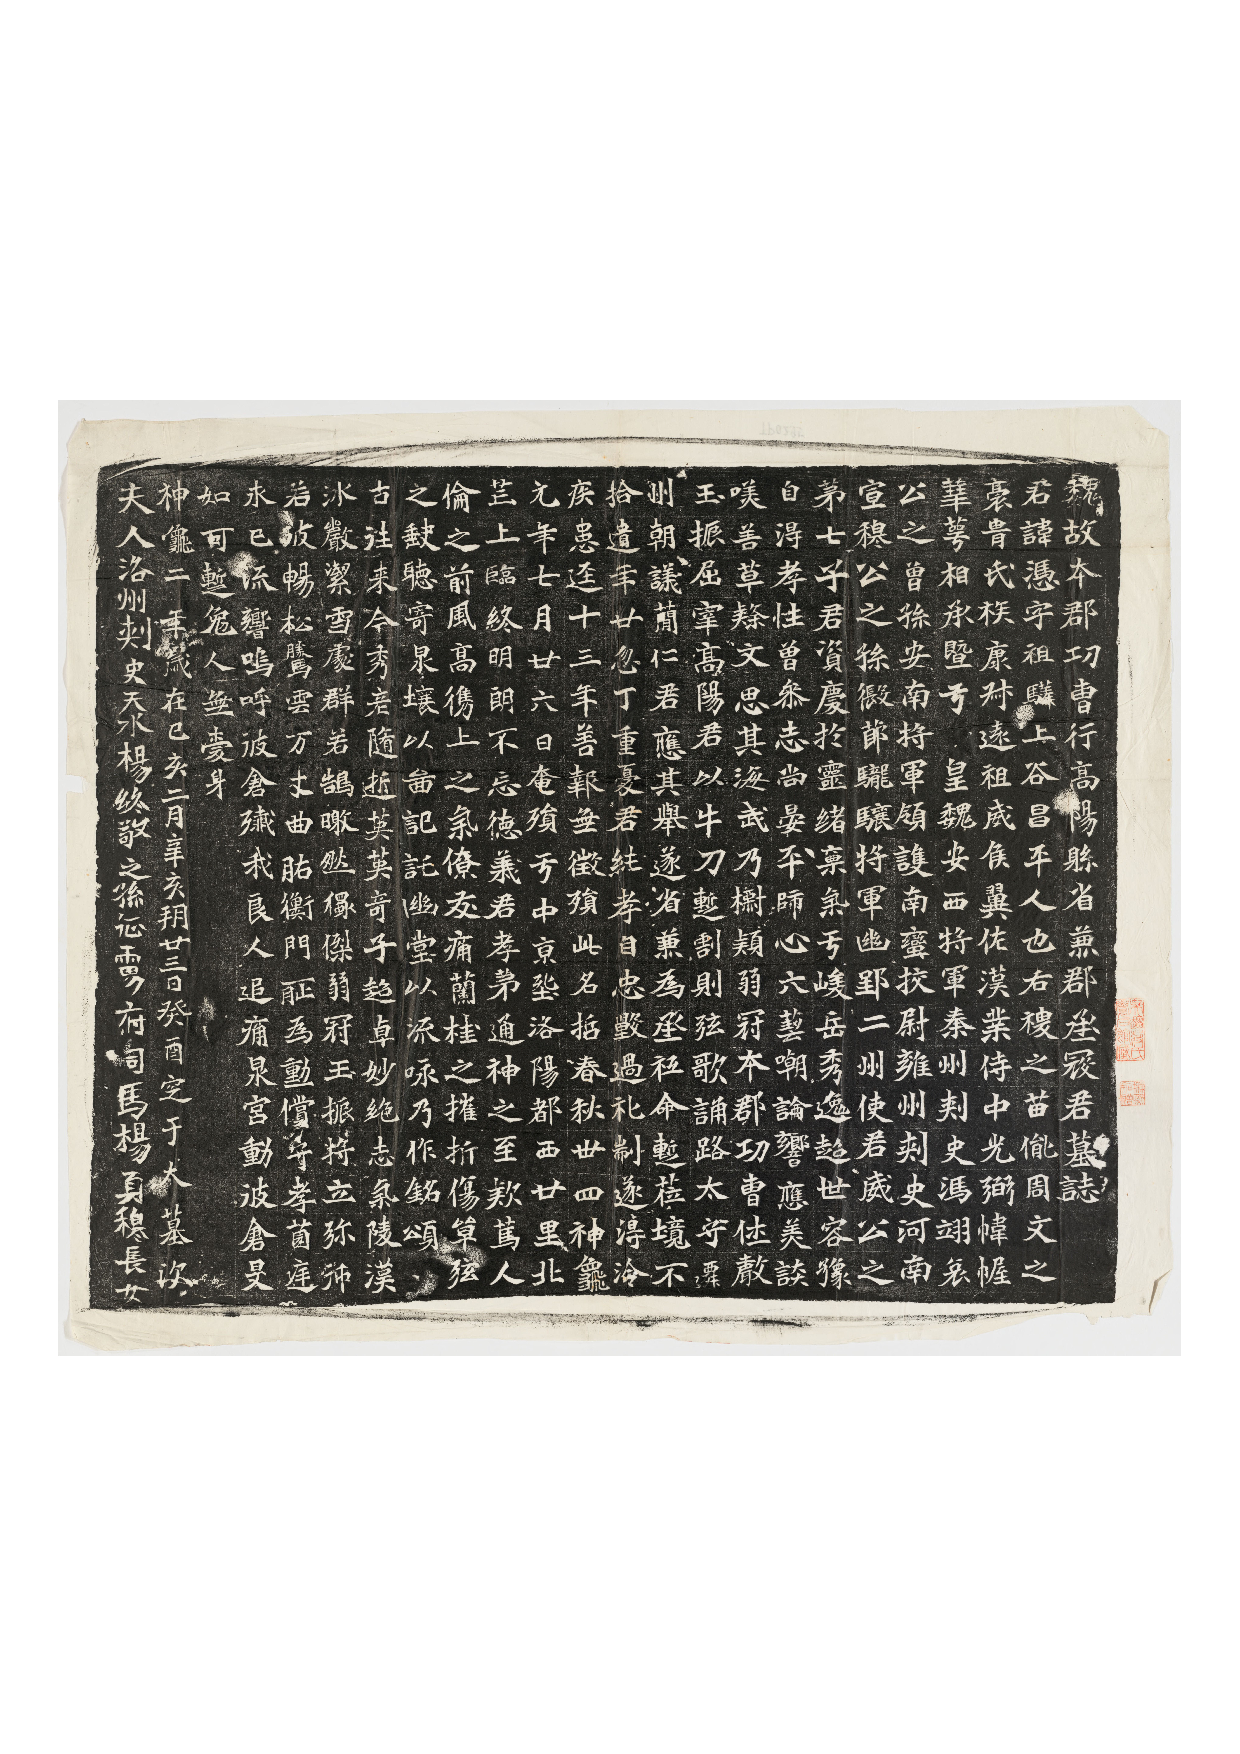 魏故本郡功曹行高陽縣省兼郡丞寇君墓誌
君諱憑字祖驎上谷昌平人也右禝之苗胤周文之
裔胄氏族康叔遠祖威侯翼佐漢業侍中光弼幃幄
華萼相承暨于皇魏安西將軍秦州刾史馮翊哀
公之曾孫安南將軍領護南蠻挍尉雍州刾史河南
宣穆公之孫假節驤將軍幽郢二州使君威公之
第七子君資慶扵靈緒稟氣于峻岳秀逸超世容豫
自得孝性曾叅志尚晏平師心六藝嘲論響應美談
唉善草隸文思其海武乃檦穎弱冠本郡功曹休聲
玉振屈宰高陽君以牛刀蹔割則弦歌誦路太守譚
州朝議蕳仁君應其舉遂省兼為丞秪命蹔莅境不
拾遺年廿忽丁重憂君純孝自忠毀過礼制遂淂冷
疾患逕十三年善報無徵殞此名招春秋卅四神龜
元年七月廿六日奄殞于中京塋洛陽都西廿里北
芒上臨終明朗不忘德義君孝第通神之至欵萬人
倫之前風高儁上之氣僚友痛蘭桂之摧折傷草弦
之缺聽寄泉壤以畱記託幽堂以流咏乃作銘頌
古往来今秀彦随逝英英奇子超卓妙絶志氣陵漢
氷嚴潔雪處群若鵠暾然獨傑弱冠玉振将立弥沛
若波暢松騰雲万丈曲肱衡門耻為動儻尊孝茵庭
未已流響嗚呼彼倉殲我良人追痛泉宮動彼倉旻
如可蹔免人無憂身
神龜二年歲在己亥二月辛亥朔廿三日癸酉窆于大墓次
夫人洛州刾史天水楊終敬之孫征虜府司馬楊貞穆長女